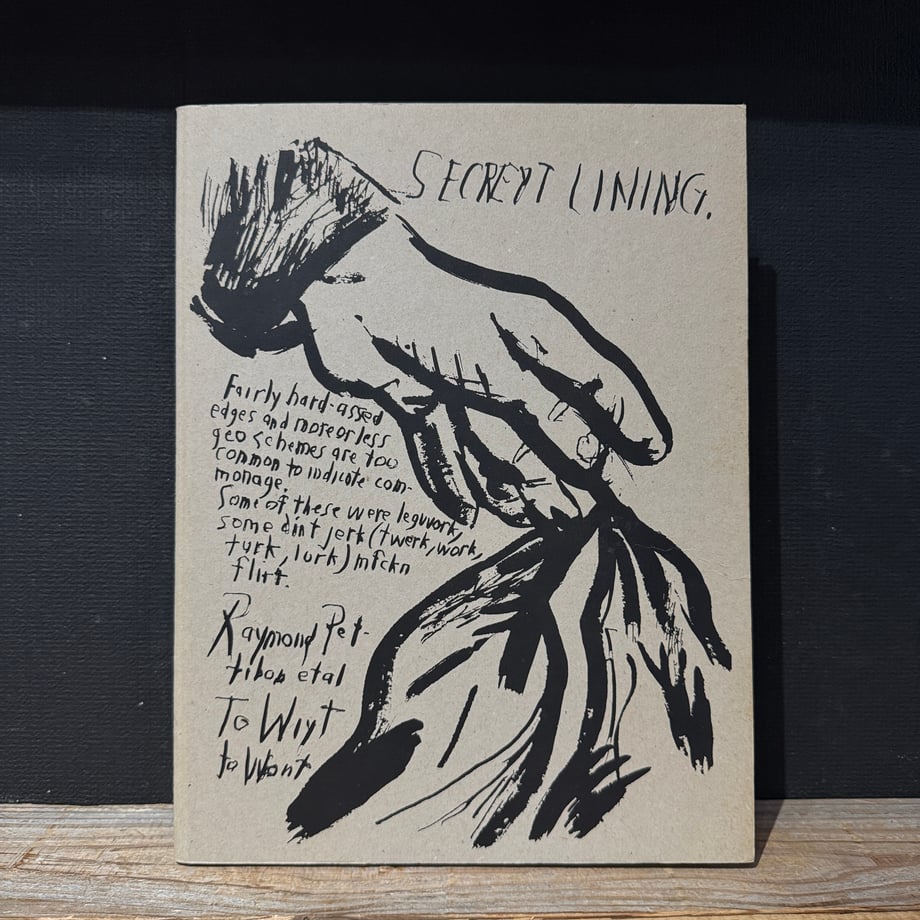 SECREYT LINING.
Fairly hard-assed
edges and more or less
geo schemes are too
common to indicate com-
monage.
Some of these were legwork,
some aint jerk (twerk, work,
turk, lurk) mfckn
flirt.
Raymond Pet-
tibon etal
To Wiyt
to Want